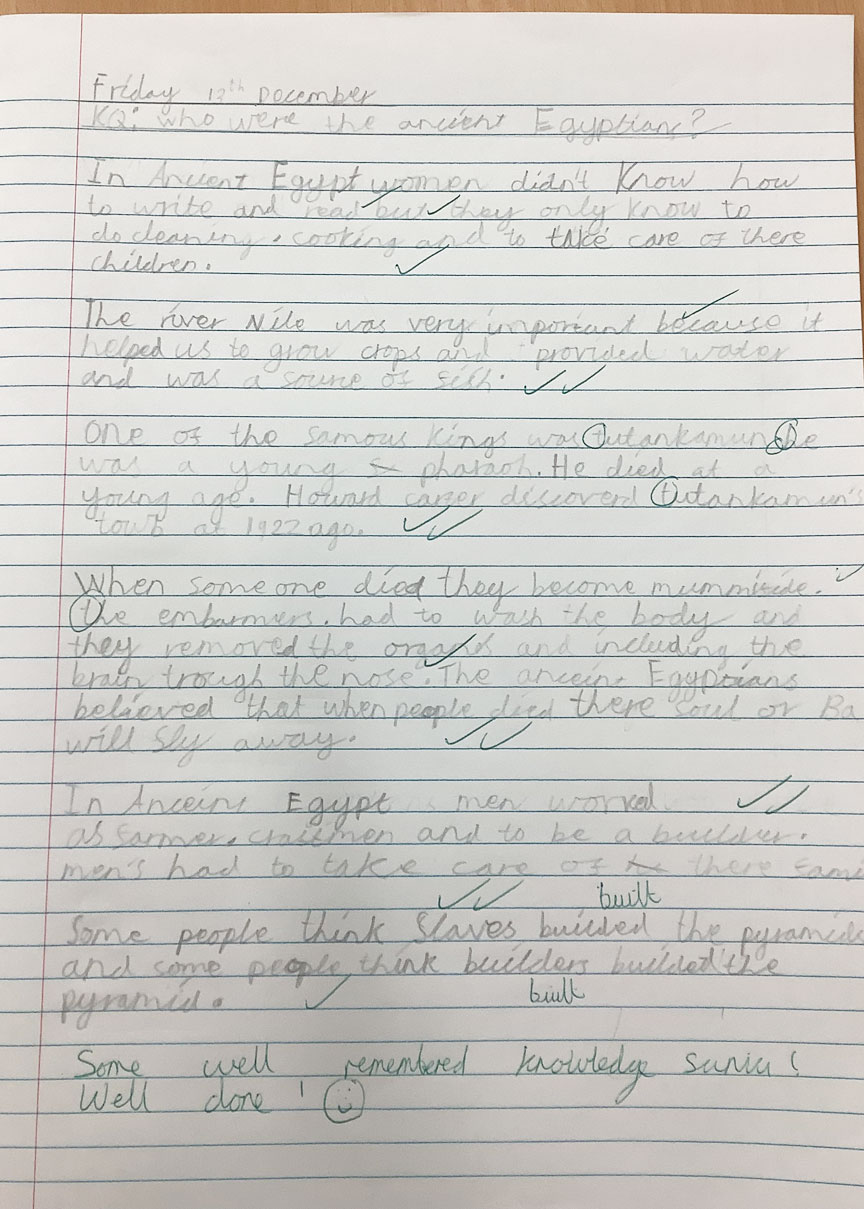 Friday 13th December
KQ: who were the ancient Egyptians?
In Ancient Egypt women didn't know how
to write and read but they only know to
do cleaning, cooking and to take care of there
children.
The river Nile was very important because it
helped us to grow crops and provided water
and was a source of fish.
One of the famous kings was tutankamun he
was a young pharaoh. He died at a
young age. Howard carter discoverd tutankamun's
at 1922 ago.
When someone died they become
the embarmers. had to wash the body and
they removed the organs and including the
brain trough the nose. The ancein Egyptians
believed that when people died there soul or Ba
will fly away.
In Anceint Egypt men worked
as farmer, craftmen and to be a builder.
men's had to take care of there fami
built
Some people think slaves builded the pyramids
and some people think builders builded the
pyramid.
built
Some well remembered knowledge
Well done!